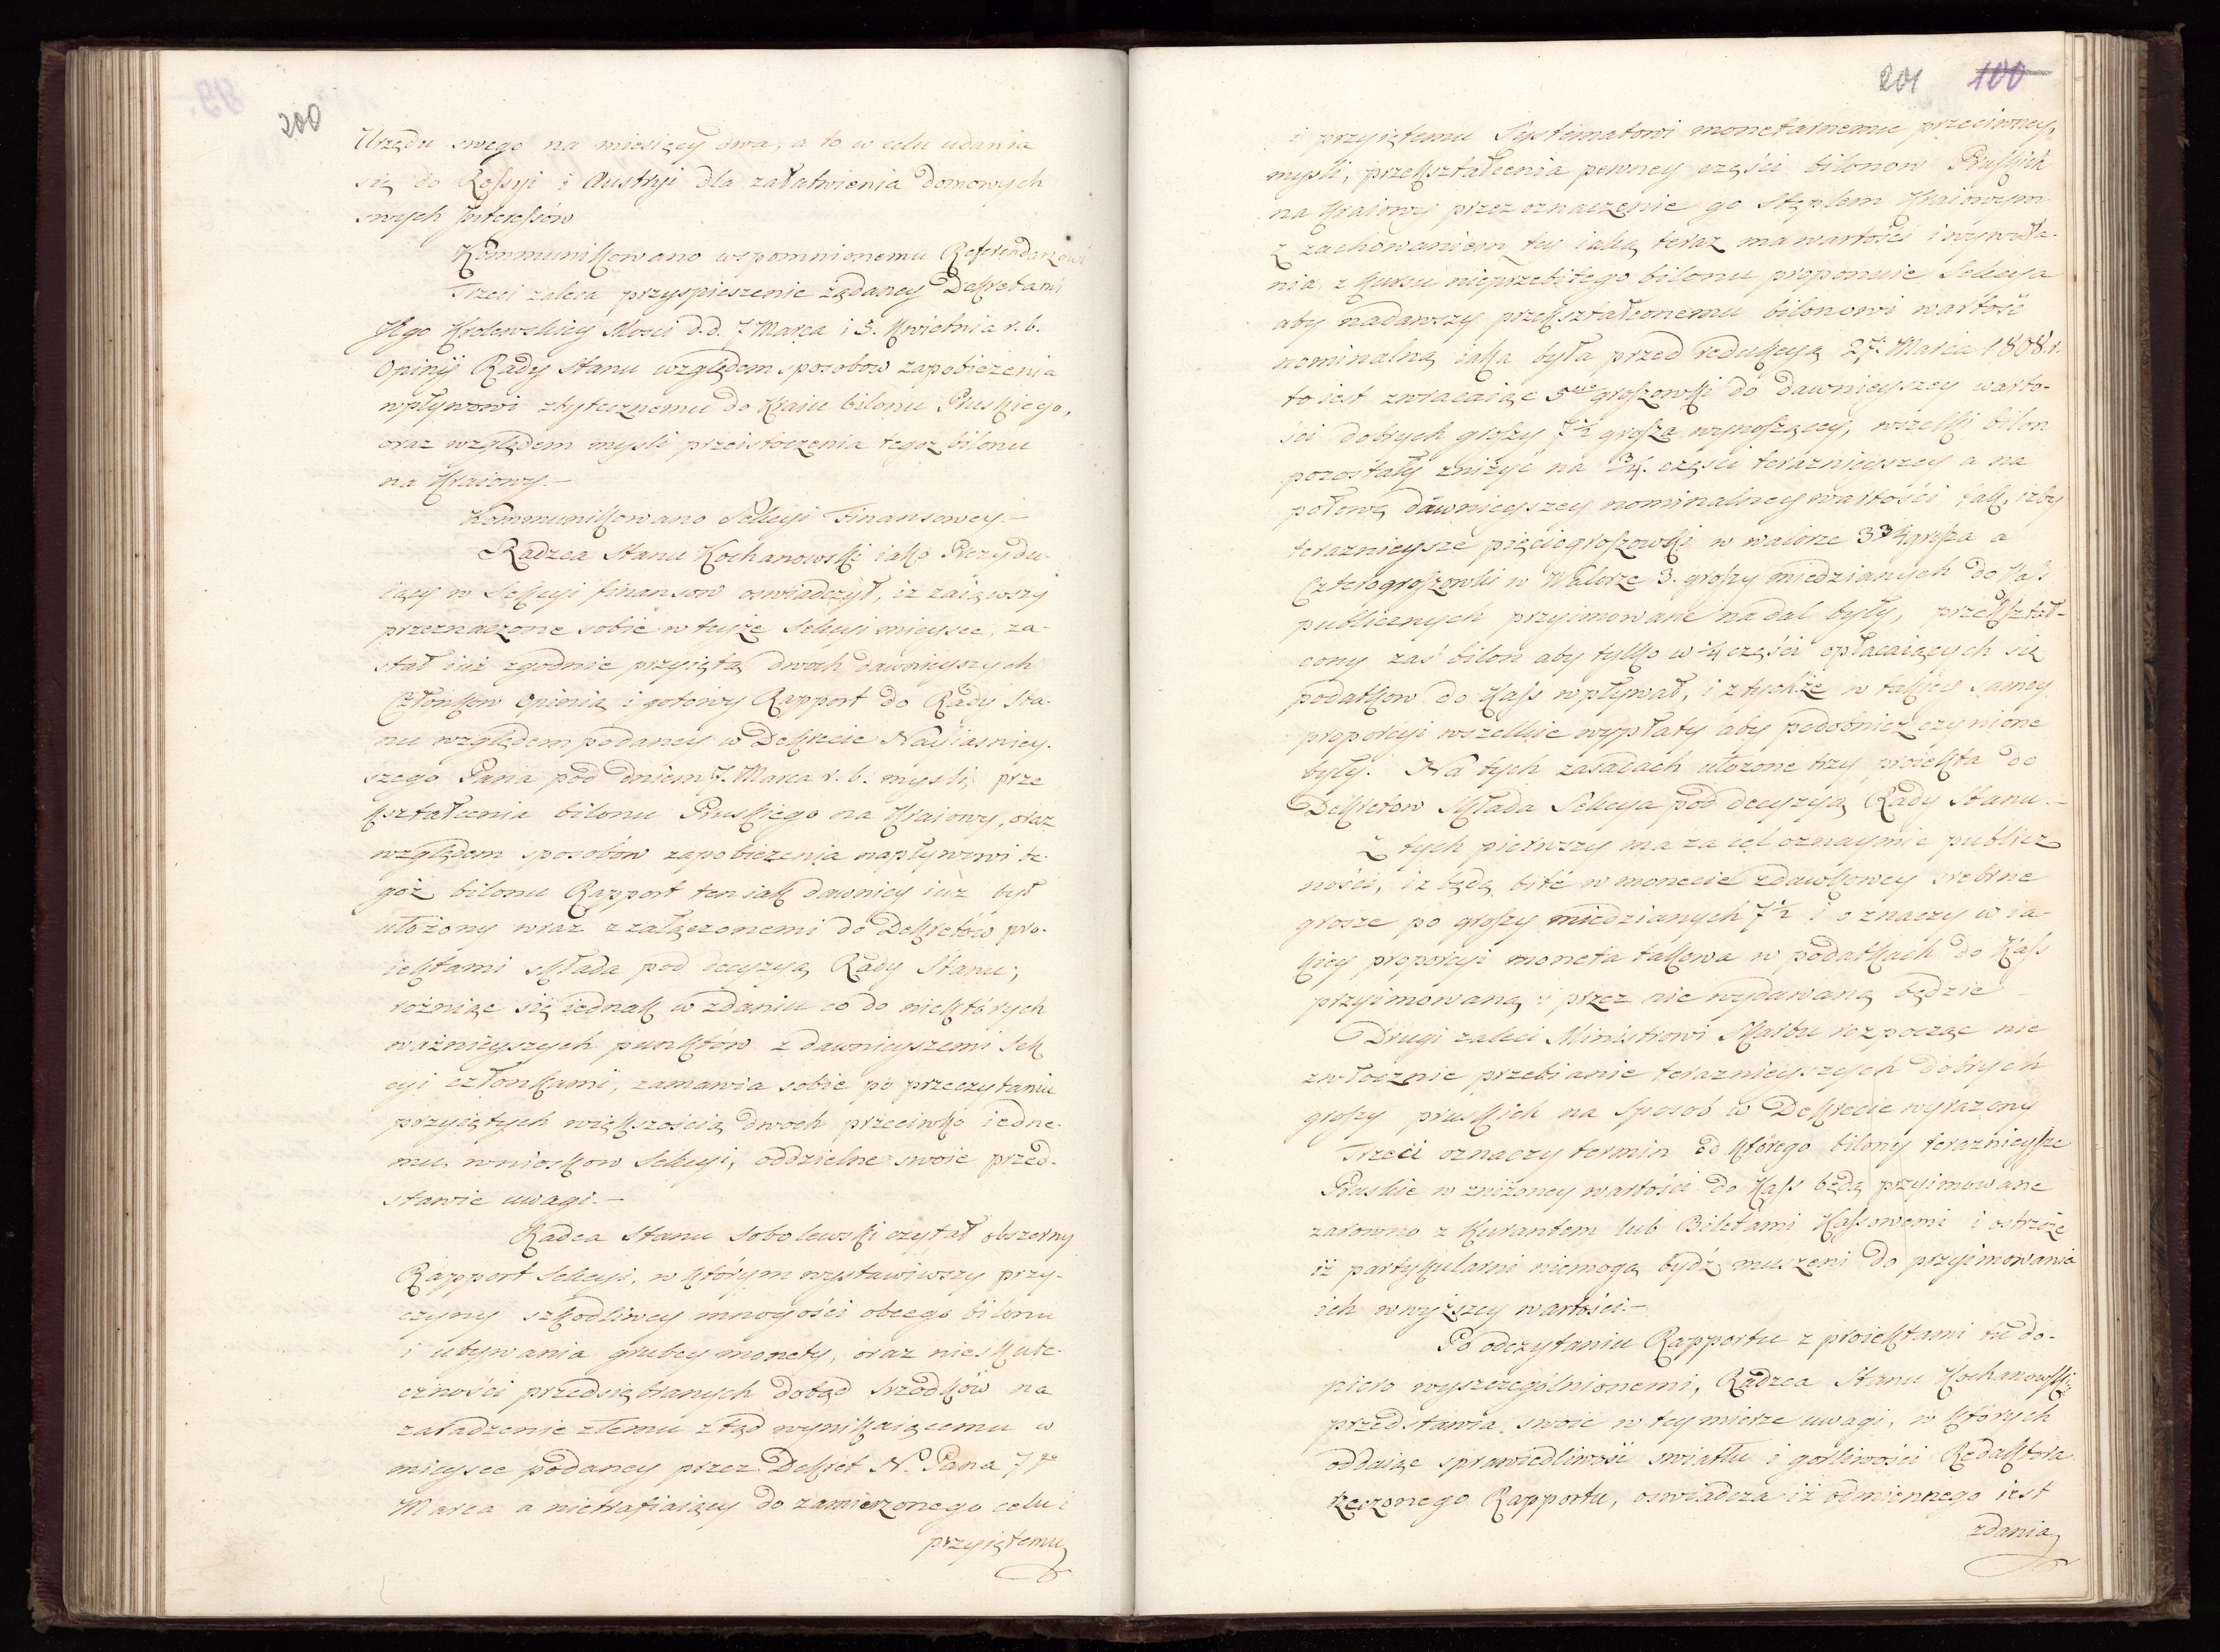 200
Urzędu swego na miesięcy dwa, a to w celu udania
się do Rossyi i Austryi dla załatwienia domowych
swych Interessów
Kommunikowano wspomnionemu Referendarzowi
Trzeci zaleca przyspieszenie żądaney Dekretami
Jego Krolewskiey Mosci d.d. 7 Marca i 5. Kwietnia r. b.
Opinij Rady Stanu względem sposobow zapobieżenia
wpływowi zbytecznemu do Kraiu bilonu Pruskiego,
oraz względem mysli przeistoczenia tegoz bilonu
na Kraiowy.–
Kommunikowano Sekcyi Finansowey.–
Radzca Stanu Kochanowski iako Prezydu-
iący w Sekcyi finansow oswiadczył, iz zaiąwszy
przeznaczone sobie w teyże Sekcyi mieysce, za-
stał iuż zgodnie przyiętą dwoch dawnieyszych
Członkow Opinią i gotowy Rapport do Rady Sta-
nu względem podaney w Dekrecie Nayiasniey-
szego Pana pod dniem 7. Marca r. b. mysli, prze
kształcenia bilonu Pruskiego na Kraiowy, oraz
względem sposobów zapobieżenia napływowi te-
goż bilonu Rapport ten iak dawniey iuż był
ułożony wraz z załączonemi do Dekretów pro-
iektami składa pod decyzyą Rady Stanu;
rożniąc się iednak w zdaniu co do niektórych
ważnieyszych punktów z dawnieyszemi Sek
cyi członkami, zamawia sobie po przeczytaniu
przyiętych większością dwoch przeciwko iedne-
mu wnioskow Sekcyi, oddzielne swoie przed-
stawie uwagi.–
Radca Stanu Sobolewski czytał obszerny
Rapport Sekcyi, w którym wystawiwszy przy-
czyny szkodliwey mnogości obcego bilonu
i ubywania grubey monety, oraz niesku̇te-
czności przedsiębranych dotąd srzodków na
zaradzenie złemu ztąd wynikaiącemu w
mieysce podaney przez Dekret N. Pana 7go
Marca a nietrafiaiącey do zamierzonego celu i
przyiętemu
201 100
i przyiętemu Systematowi monetarnemu przeciwney,
mysli, przekształcenia pewney części bilonow Pruskich
na Kraiowy przez oznaczenie go Stęplem Kraiowym
z zachowaniem tey iaką teraz ma wartości i wywoła-
nia z kursu nieprzebitego bilonu proponuie Sekcya
aby nadawszy przekształconemu bilonowi wartość
nominalną iaka była przed redukcyą 27. Marca 1808 r.
to iest zwracaiąc 5cio groszowki do dawnieyszey warto-
ści dobrych groszy 7½ grosza wynoszącey, wszelki bilon
pozostały zniżyć na ¾. części teraznieyszey a na
połowę dawnieyszey nominalney wartości tak, iżby
teraznieysze pięciogroszowki w walorze 3¾ grosza a
Czterogroszowki w Walorze 3. groszy miedzianych do Kass
publicznych przyimowane nadal były, przekształ-
cony zaś bilon aby tylko w ¼ części opłacaiących się
podatkow do Kass wpływał, i z tychże w takiey samey
proporcyi wszelkie wypłaty aby podobnież czynione
były. Na tych zasadach ułożone trzy proiekta do
Dekretow składa Sekcya pod decyzyą Rady Stanu.–
Z tych pierwszy ma za cel oznaymic publicz
ności, iz będą bite w monecie zdawkowey srebrne
grosze po groszy miedzianych 7½ i oznaczy w ia-
kiey proporcyi moneta takowa w podatkach do Kass
przyimowaną i przez nie wydawaną będzie
Drugi zaleci Ministrowi Skarbu rozpocząc nie
zwłocznie przebianie teraznieyszych dobrych
groszy pruskich na sposob w Dekrecie wyrazony
Trzeci oznaczy termin od którego bilony teraznieysze
Pruskie w zniżoney wartości do Kass będą przyimowane
zarowno z Kurantem lub Biletami Kassowemi i ostrzeże
iż partykularni niemogą bydź muszeni do przyimowania
ich w wyższey wartości.–
Po odczytaniu Rapportu z proiektami tu do-
piero wyszczególnionemi, Radzca Stanu Kochanowski
przedstawia swoie w tey mierze uwagi, w których
oddaiąc sprawiedliwość swiatłu i gorliwości Redaktora
rzeczonego Rapportu, oswiadcza iż odmiennego iest
zdania